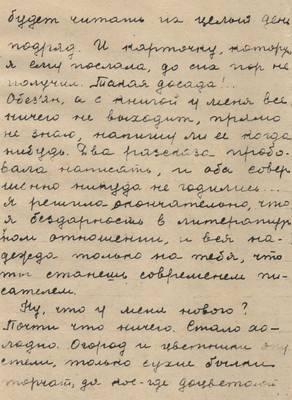 будет читать их целый день
подряд. И карточку, которую
я ему послала, до сих пор не
получил. Такая досада!..
Обезян, а с книгой у меня все
ничего не выходит, прямо
не знаю, напишу ли ее когда
нибудь. Два рассказа пробо-
вала написать, и оба совер
шенно никуда не годились...
Я решила окончательно, что
я бездарность в литератур
ном отношении, и вся на-
дежда только на тебя, что
ты станешь современем пи-
сателем.
Ну, что у меня нового?
Почти что ничего. Стало хо-
лодно. Огород и цветники опу
стели, только сухие былки
торчат, да кое-где доцветают